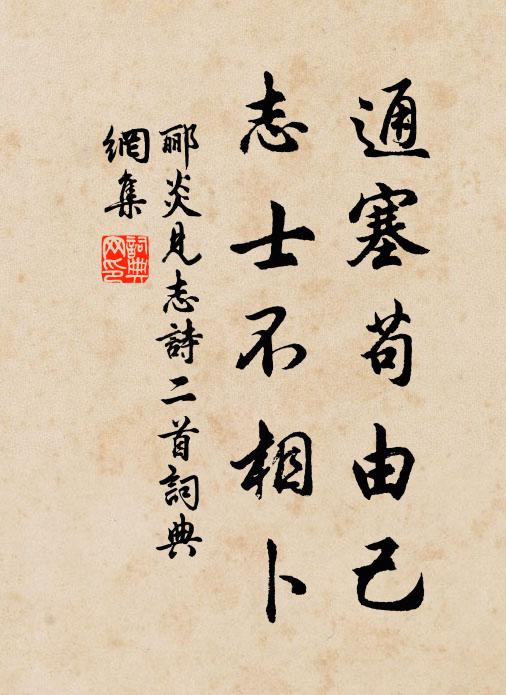 通塞苟由己
志士不相卜
酈炎見志詩二首詞典
網集
詞典網印